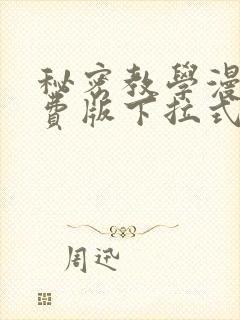 秘密教學漫
費版下拉式
周迅